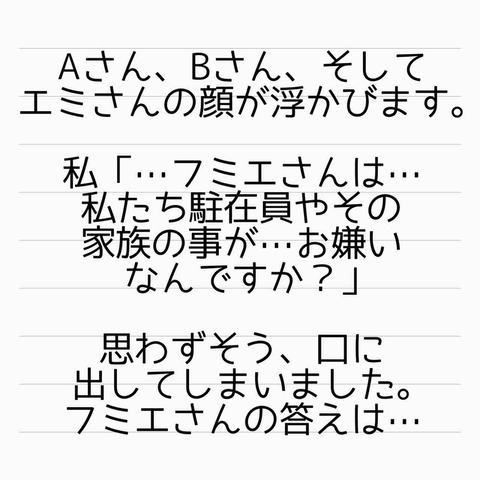 Aさん、Bさん、そして
エミさんの顔が浮かびます。
私「…フミエさんは…
私たち駐在員やその
家族の事が…お嫌い
なんですか？」
思わずそう、口に
出してしまいました。
フミエさんの答えは…